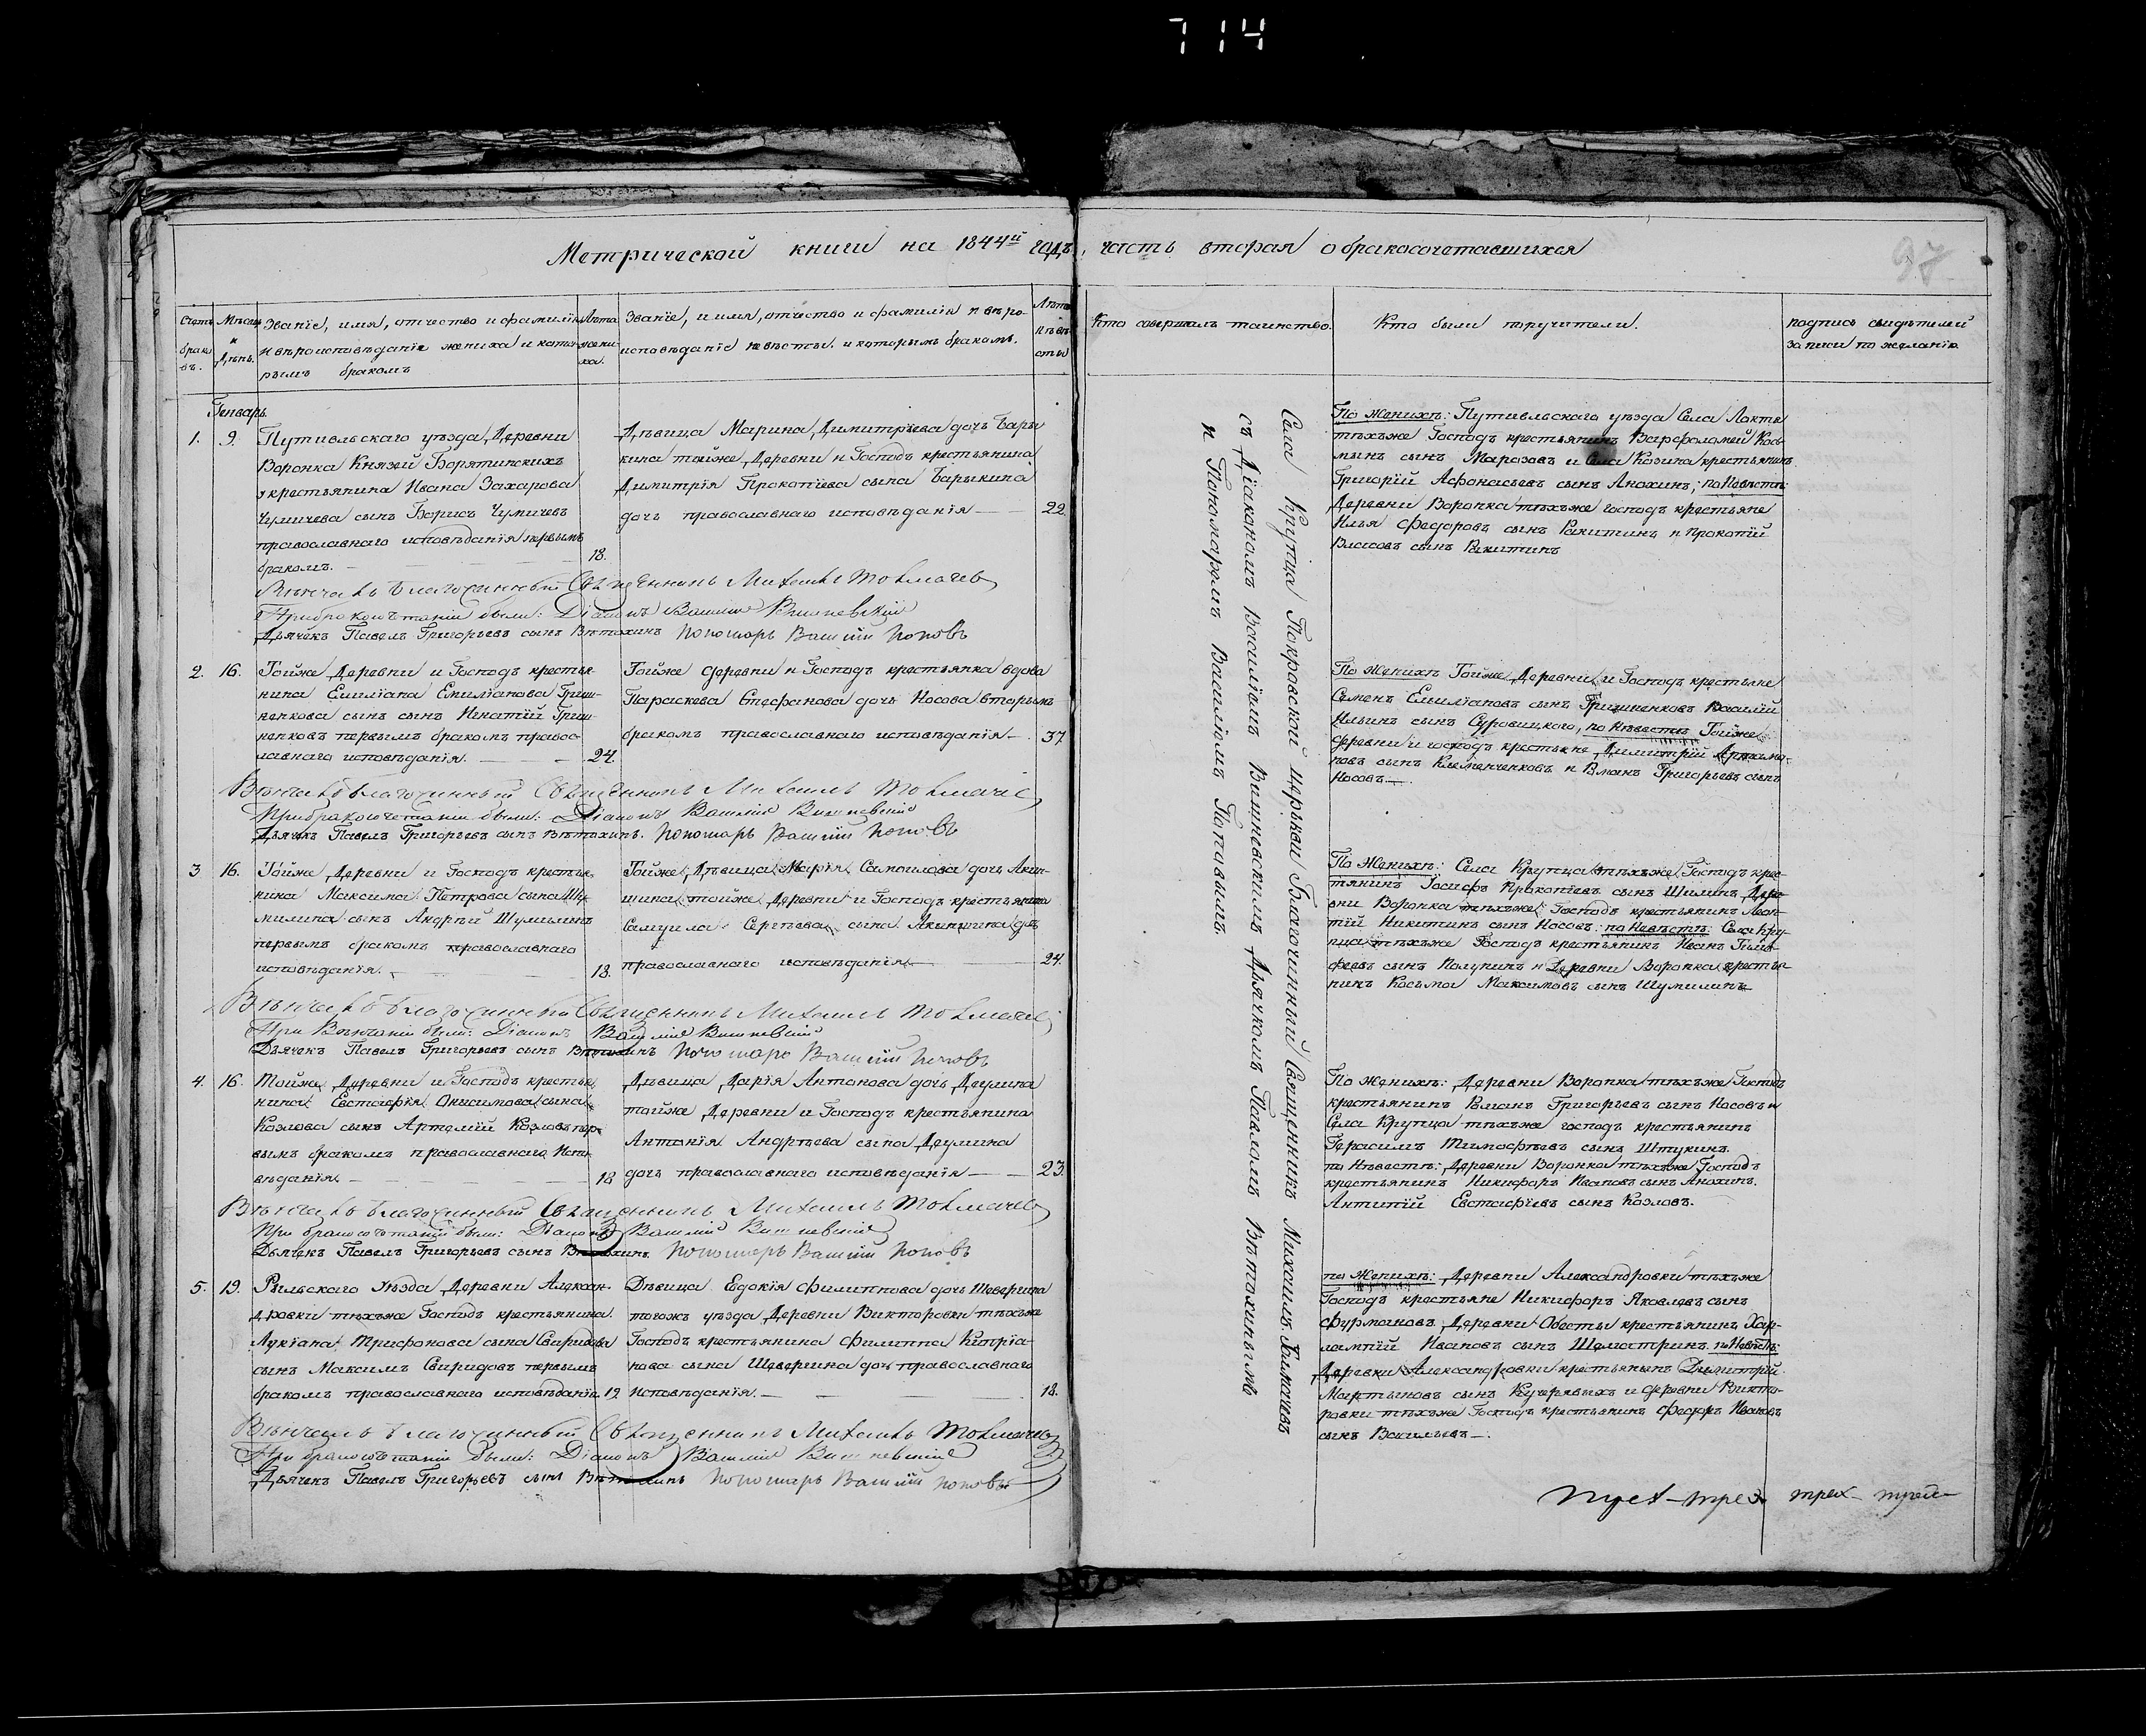 714
Метрической книги на 1844й годъ, часть вторая о бракосочетавшихся
97
Счетъ браковъ.
Мѣсяцъ и День.
Званіе, имя, отчество и фамилія
и вѣроисповѣданіе жениха и кото-
рымъ бракомъ
Лѣта жениха.
Званіе, имя, отчество и фамилія и вѣро-
исповѣданіе невѣсты. и которымъ бракомъ.
Лѣта невѣсты
Кто совершалъ таинство.
Кто были поручители.
подпись свидѣтелей
записи по желанію
Генварь.
1. 9. Путивльскаго уѣзда, Деревни
Воронка Князей Борятинскихъ
крестьянина Ивана Захарова
Чумичева сынъ Борисъ Чумичевъ
православнаго исповѣданія первымъ
бракомъ. 18.
Дѣвица Марина, Димитрıева дочь Бары-
кина тойже, Деревни и Господъ крестьянина
Димитрія Прокопіева сына Барыкина
дочь православнаго исповѣданія 22
По Женихѣ: Путивльскаго уѣзда Села Локтя
тѣхъже Господъ крестьянинъ Варфоломей Кось-
минъ сынъ Марозовъ и Села Козина крестьянинъ
Григорій Афонасьевъ сынъ Анохинъ; по Невѣстѣ:
Деревни Воронка тѣхъже господъ крестьяне
Илья Федоровъ сынъ Ракитинъ и Прокопій
Власовъ сынъ Ракитинъ
Вѣнчалъ благочинный Священникъ Михаилъ Толмачев
При бракосочетаніи были: Діаконъ Василій Вишневскій
Дьячекъ Павелъ Григорьевъ сынъ Вѣтохинъ Пономарь Василій Поповъ
2. 16. Тойже, Деревни и Господъ крестья-
нина Емиліана Емиліанова Гриш-
ненкова сынъ сынъ Игнатій Гриш-
ненковъ первымъ бракомъ правос-
лавнаго исповѣданія. 24.
Тойже деревни и Господъ крестьянка вдова
Параскева Стефанова дочь Носова вторымъ
бракомъ православнаго исповѣданія 37.
По Женихѣ Тойже, Деревни и Господъ крестьяне
Семенъ Емиліановъ сынъ Гришненковъ Василій
Ильинъ сынъ Суровицкого, по Невѣстѣ Тойже
деревни и господъ крестьяне, Димитрій Артамо-
новъ сынъ Клеменченковъ и Романъ Григорьевъ сынъ
Носовъ.
Вѣнчалъ благочинный Священникъ Михаилъ Толмачев
При бракосочетаніи были: Діаконъ Василій Вишневскій
Дьячекъ Павелъ Григорьевъ сынъ Вѣтохинъ. Пономарь Василій Поповъ
3 16. Тойже, Деревни и Господъ крестья-
нина Максима Петрова сына Шу-
милина сынъ Андрей Шумилинъ
первымъ бракомъ православнаго
исповѣданія. 18.
Тойже, Дѣвица Марія Самоилова дочь Акин-
шина тойже, Деревни и Господъ крестьянина
Самуила Сергѣева сына Акиншина дочь
православнаго исповѣданія 24.
По Женихѣ: Села Крупца тѣхъже Господъ крес-
тянинъ Іосифъ Прокопіевъ сынъ Шилинъ, Дере-
вни Воронка тѣхъже Господъ крестьянинъ Леон-
тій Никитинъ сынъ Носовъ: по Невѣстѣ: Села Кру-
пца тѣхъже Господъ крестьянинъ Иванъ Тимо-
феевъ сынъ Полунинъ и Деревни Воронка крестья-
нинъ Косьма Максимовъ сынъ Шумилинъ
Вѣнчалъ благочинный Священникъ Михаилъ Толмачев
При Вѣнчаніи были: Діаконъ Василій Вишневскій
Дьячекъ Павелъ Григорьевъ сынъ Вѣтохинъ Пономарь Василій Поповъ
4. 16. Тойже, Деревни и Господъ крестья-
нина Евстафія Онисимова сына
Козлова сынъ Артемій Козловъ пер-
вымъ бракомъ православнаго Испо-
вѣданія. 18
Дѣвица Дарія Антонова дочь, Деулина
тойже, Деревни и Господъ крестьянина
Антонія Андрѣева сына, Деулина
дочь православнаго исповѣданія 23.
По Женихѣ: Деревни Воронка тѣхъже Господъ
крестьянинъ Романъ Григорьевъ сынъ Носовъ и
Села Крупца тѣхъже господъ крестьянинъ
Герасимъ Тимофѣевъ сынъ Штукинъ.
по Невѣстѣ: Деревни Воронка тѣхъже Господъ
крестьянинъ Никифоръ Ивановъ сынъ Анохинъ.
Антипій Евстафіевъ сынъ Козловъ.
Вѣнчалъ благочинный Священникъ Михаилъ Толмачев
При бракосочетаніи были: Діаконъ Василій Вишневскій
Дьячекъ Павелъ Григорьевъ сынъ Вѣтохинъ. Пономарь Василій Поповъ
5. 19. Рыльскаго Уѣзда, Деревни Алексан-
дровки тѣхъже Господъ крестьянина.
Лукіана Трифонова сына Свиридова
сынъ Максимъ Свиридовъ первымъ
бракомъ православнаго исповѣданія. 19
Дѣвица Евдокія Филиппова дочь Шеверина
тогожъ уѣзда, Деревни Викторовки тѣхъже
Господъ крестьянина Филиппа Кипріа-
нова сына Шеверина дочь православнаго
исповѣданія. 18.
по Женихѣ: Деревни Александровки тѣхъже
Господъ крестьяне Никифоръ Яковлевъ сынъ
Фурмановъ, Деревни Обесты крестьянинъ Хар-
лампій Ивановъ сынъ Шемотринъ. по Невѣстѣ:
Деревни Александровки крестьянинъ Димитрій
Мартыновъ сынъ Кучерявыхъ и деревни Викто-
ровки тѣхъже Господъ крестьянинъ Федоръ Ивановъ
сынъ Васильевъ
Вѣнчалъ благочинный Священникъ Михаилъ Толмачев
При бракосочетаніи были: Діаконъ Василій Вишневскій
Дьячекъ Павелъ Григорьевъ сынъ Вѣтохинъ Пономарь Василій Поповъ
Села Крупца Покровской церькви Благочинный Священникъ Михаилъ Толмачевъ
съ Діакономъ Василіемъ Вишневскимъ Дьячкомъ Павломъ Вѣтохинымъ
и Пономаремъ Василіемъ Поповымъ.